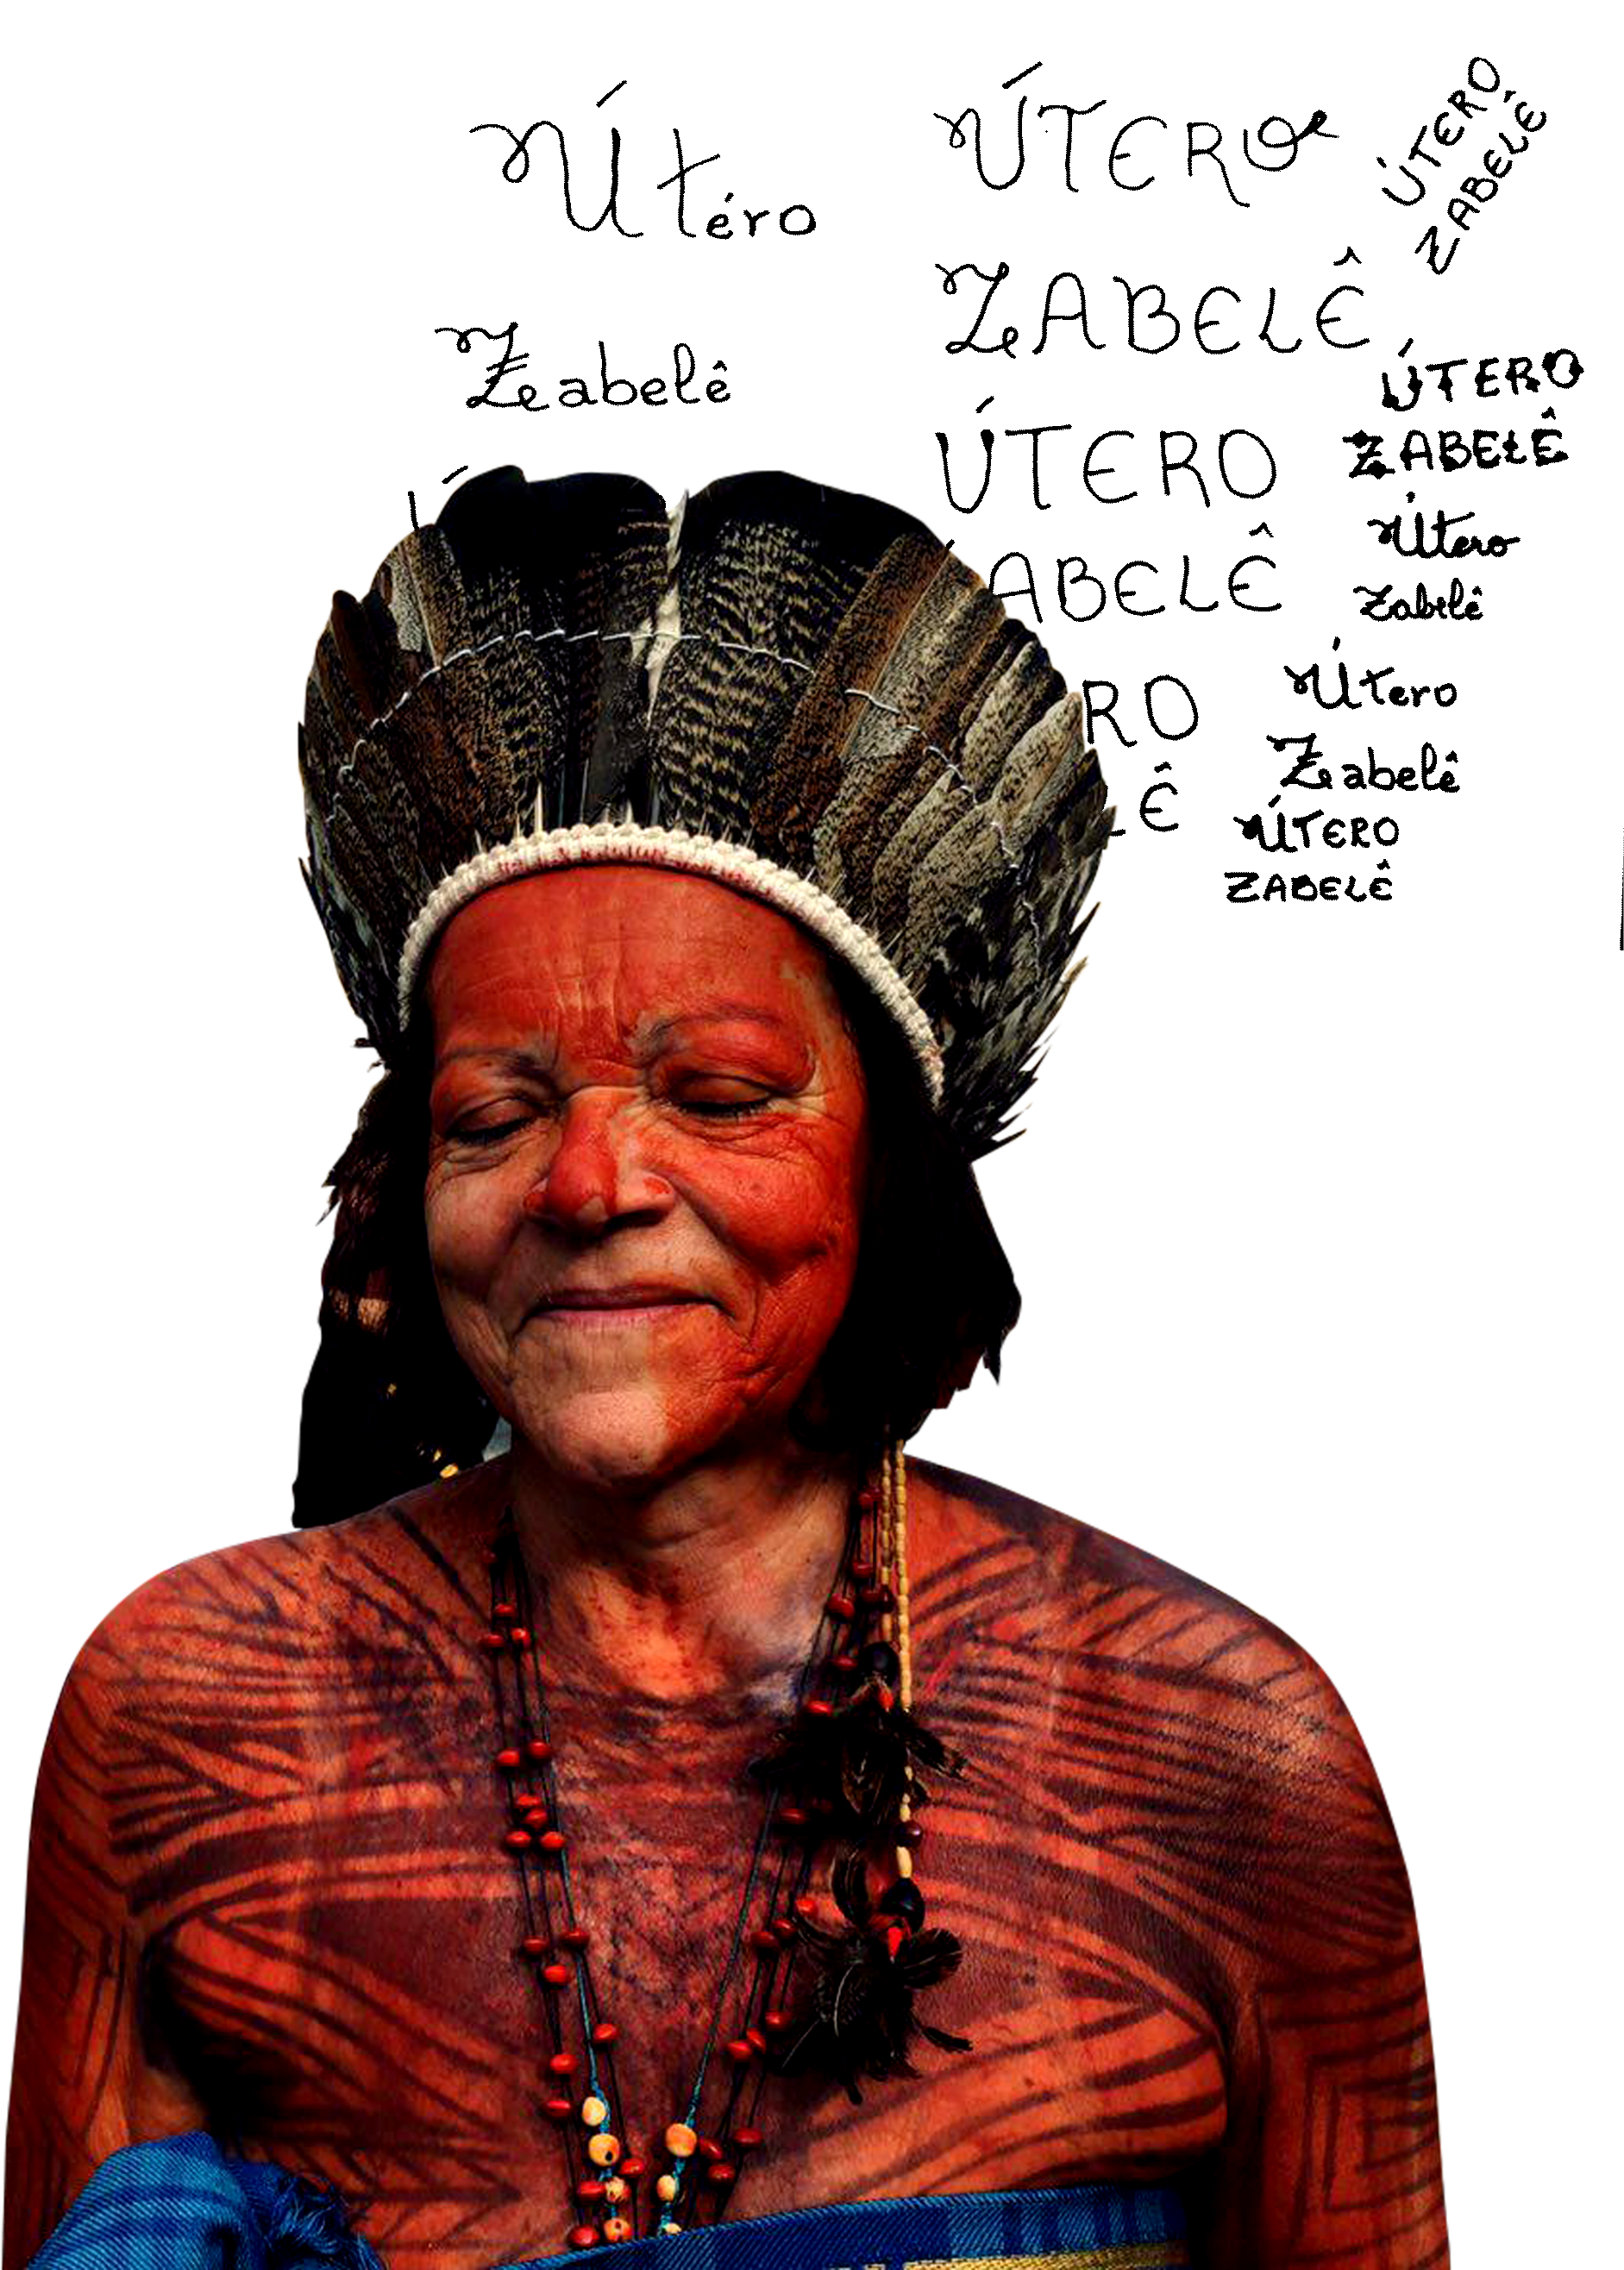 Útéro
Zabelê
ÚTERO
ZABELÊ
ÚTERO
ABELÊ
RO
LÊ
ÚTERO
ZABELÊ
ÚTERO
ZABELÊ
Útero
Zabelê
Útero
Zabelê
ÚTERO
ZABELÊ